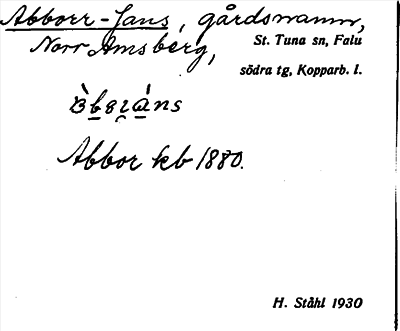 Abborr-Jans, gårdsnamn,
Norr Amsberg,
St. Tuna sn, Falu
södra tg, Kopparb. l.
Abbor kb 1880.
H. Ståhl 1930